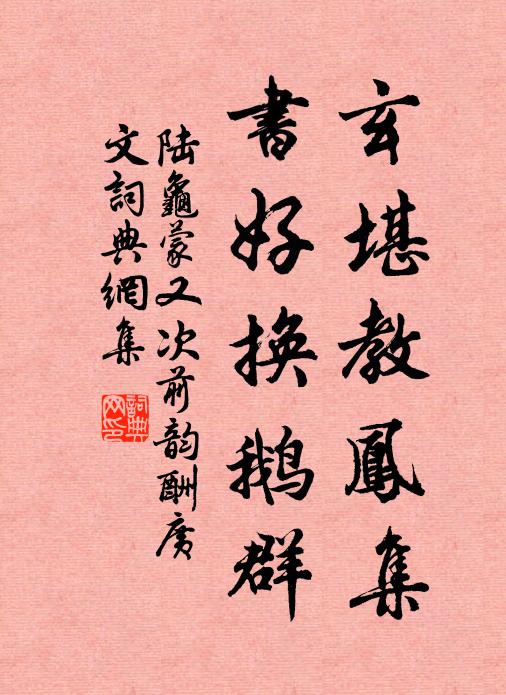 玄堪教鳳集
書好換鵝群
陆龜蒙又次前韵酬廣
文詞典網集
詞典網印